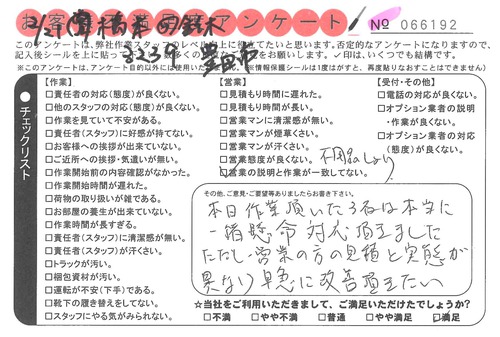 お客 アンケート № 066192
2/29
323号
このアンケートは、弊社作業スタッフのレベル向上に役立てたいと思います。否定的なアンケートになりますので、
記入後シールを上に貼って をお願いします。✓印は、いくつでも結構です。
※このアンケートは、アンケート目的以外には使用いた 情報保護シールは1度はがすと、再度貼りなおすことはできません)
チェックリスト
【作業】
□責任者の対応(態度)が良くない。
□他のスタッフの対応(態度)が良くない。
□作業を見ていて不安がある。
□責任者(スタッフ)に好感が持てない。
□お客様への挨拶が出来ていない。
□ご近所への挨拶・気遣いが無い。
□作業開始前の内容確認がなかった。
□作業開始時間が遅れた。
□荷物の取り扱いが雑である。
□お部屋の養生が出来ていない。
□作業時間が長すぎる。
□責任者(スタッフ)に清潔感が無い。
□責任者(スタッフ)が汗くさい。
□トラックが汚い。
□梱包資材が汚い。
□運転が不安(下手)である。
□靴下の履き替えをしてない。
□スタッフにやる気がみられない。
【営業】
□見積もり時間に遅れた。
□見積もり時間が長い。
□営業マンに清潔感が無い。
□営業マンが煙草くさい。
□営業マンが汗くさい。
□営業態度が良くない。
□営業の説明と作業が一致してない。
不用品しょり
【受付・その他】
□電話の対応が良くない。
□オプション業者の説明
・作業が良くない。
□オプション業者の対応
(態度)が良くない。
その他、ご意見・ご要望等ありましたらお書き下さい。
本日作業頂いた3名は本当に
一諸懸命対応頂きました
ただし、営業の方の見積と実態が
異なり早急に改善頂きたい
☆当社をご利用いただきまして、ご満足いただけたでしょうか?
□不満 □やや不満 □普通 □やや満足 □満足